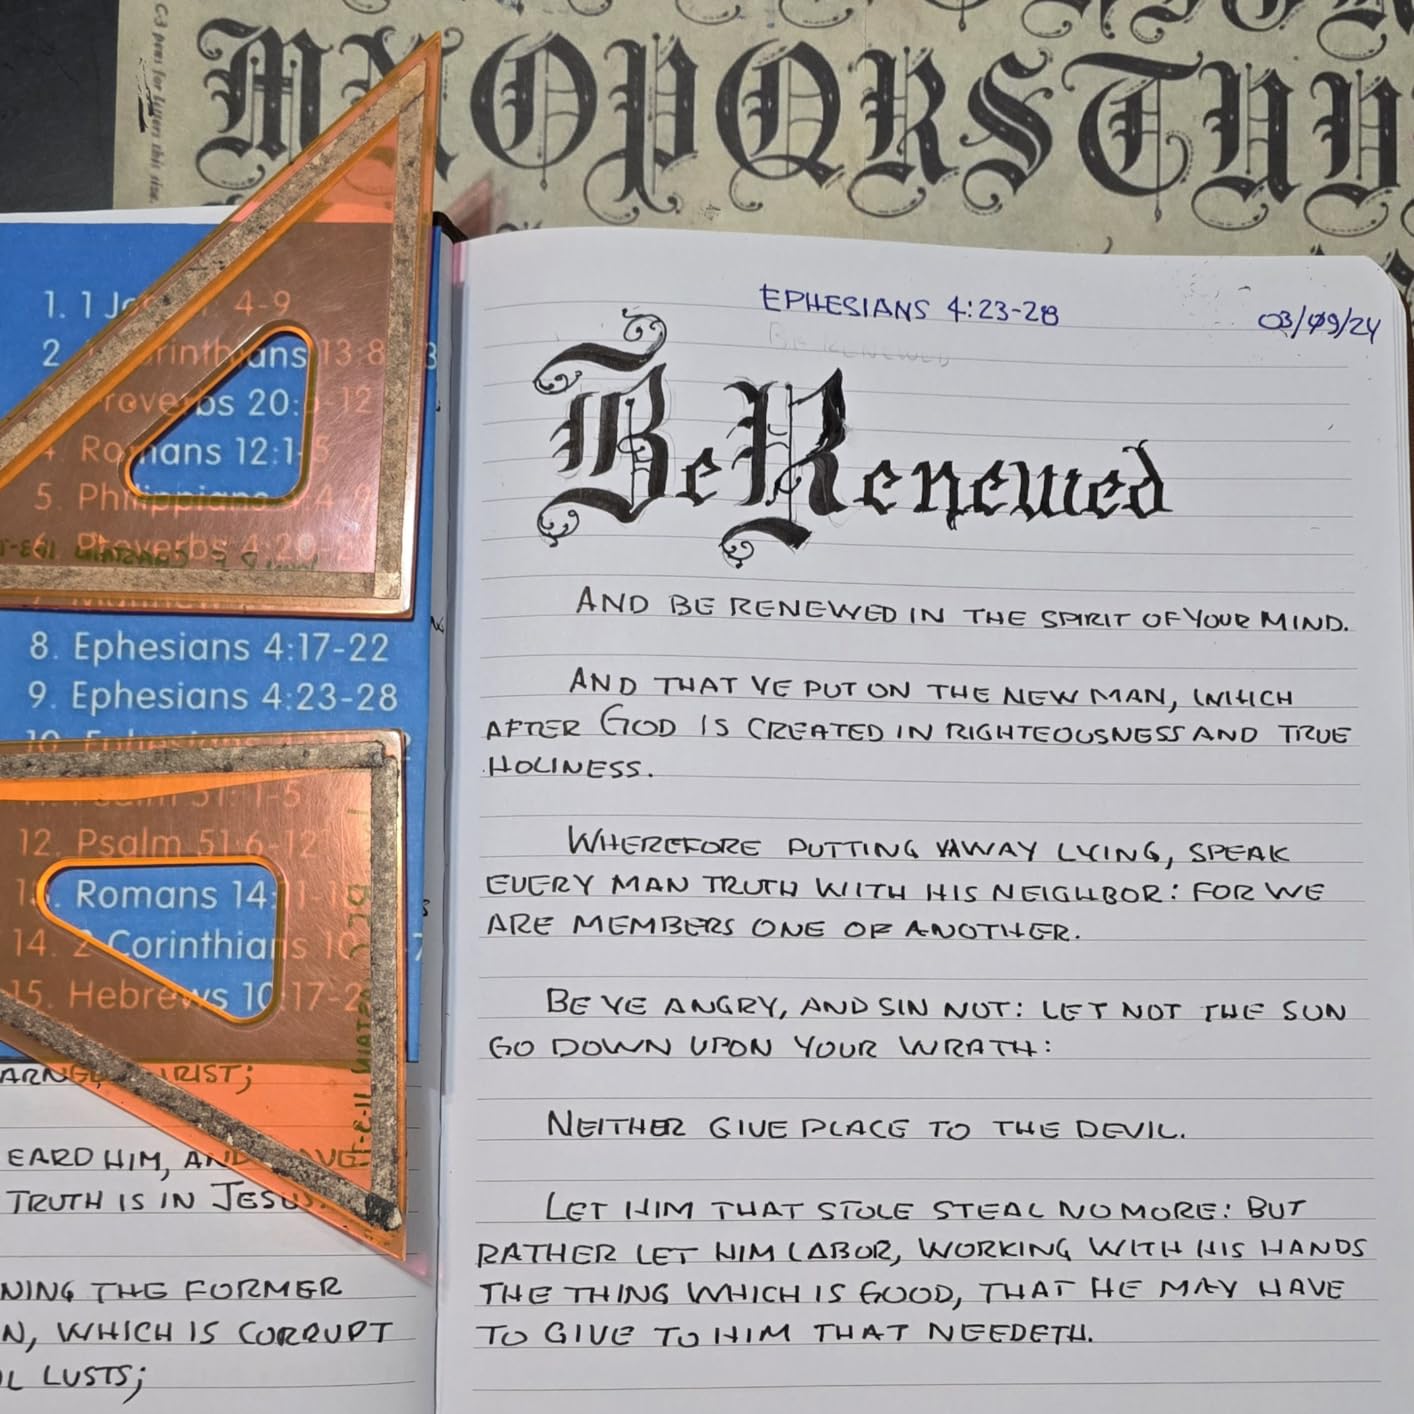 C-3 pens for letters this size.
M N O P Q R S T U V
1. 1 4-9
2 13:8
20: -12
Romans 12:1-5
5. Philippians
6. Proverbs 4:20-
8. Ephesians 4:17-22
9. Ephesians 4:23-28
12. Psalm 51:6-12
Romans 14:
14. 2 Corinthians 10
15. Hebrews 10:17-2
IRIST;
EARD HIM, AND
TRUTH IS IN JESUS.
NING THE FORMER
N, WHICH IS CORRUPT
LUSTS;
EPHESIANS 4:23-28
03/09/24
BE RENEWED
Be Renewed
AND BE RENEWED IN THE SPIRIT OF YOUR MIND.
AND THAT YE PUT ON THE NEW MAN, WHICH
AFTER GOD IS CREATED IN RIGHTEOUSNESS AND TRUE
HOLINESS.
WHEREFORE PUTTING AWAY LYING, SPEAK
EVERY MAN TRUTH WITH HIS NEIGHBOR: FOR WE
ARE MEMBERS ONE OF ANOTHER.
BE YE ANGRY, AND SIN NOT: LET NOT THE SUN
GO DOWN UPON YOUR WRATH:
NEITHER GIVE PLACE TO THE DEVIL.
LET HIM THAT STOLE STEAL NO MORE: BUT
RATHER LET HIM LABOR, WORKING WITH HIS HANDS
THE THING WHICH IS GOOD, THAT HE MAY HAVE
TO GIVE TO HIM THAT NEEDETH.